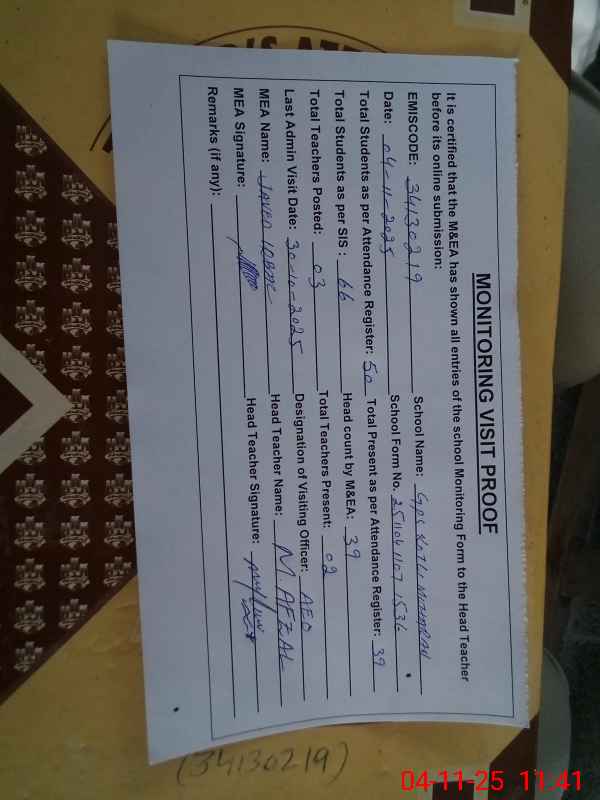 MONITORING VISIT PROOF
It is certified that the M&EA has shown all entries of the school Monitoring Form to the Head Teacher
before its online submission:
EMISCODE: 34130219 School Name: GPS KOTLI
Date: 04-11-2025 School Form No. 2511041107 1536
Total Students as per Attendance Register: 50 Total Present as per Attendance Register: 39
Total Students as per SIS : 66 Head count by M&EA: 39
Total Teachers Posted: 03 Total Teachers Present: 02
Last Admin Visit Date: 30-10-2025 Designation of Visiting Officer: AEO
MEA Name: JAVED IQBAL Head Teacher Name: M AFZAL
MEA Signature: Head Teacher Signature:
Remarks (if any):
(34130219)
04-11-25 11:41